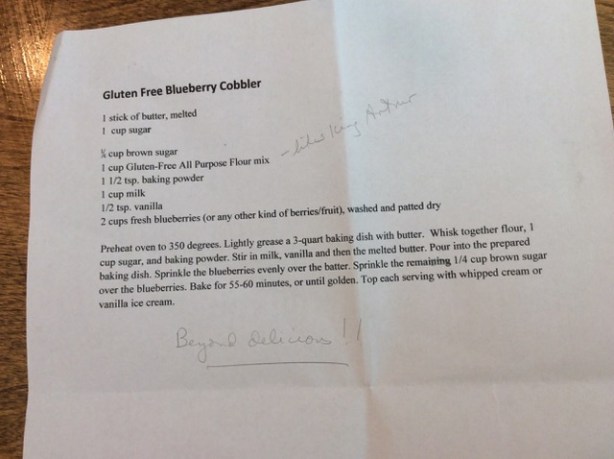 Gluten Free Blueberry Cobbler
1 stick of butter, melted
1 cup sugar
¼ cup brown sugar
1 cup Gluten-Free All Purpose Flour mix
- likes King Arthur
1 1/2 tsp. baking powder
1 cup milk
1/2 tsp. vanilla
2 cups fresh blueberries (or any other kind of berries/fruit), washed and patted dry
Preheat oven to 350 degrees. Lightly grease a 3-quart baking dish with butter. Whisk together flour, 1
cup sugar, and baking powder. Stir in milk, vanilla and then the melted butter. Pour into the prepared
baking dish. Sprinkle the blueberries evenly over the batter. Sprinkle the remaining 1/4 cup brown sugar
over the blueberries. Bake for 55-60 minutes, or until golden. Top each serving with whipped cream or
vanilla ice cream.
Beyond delicious !!